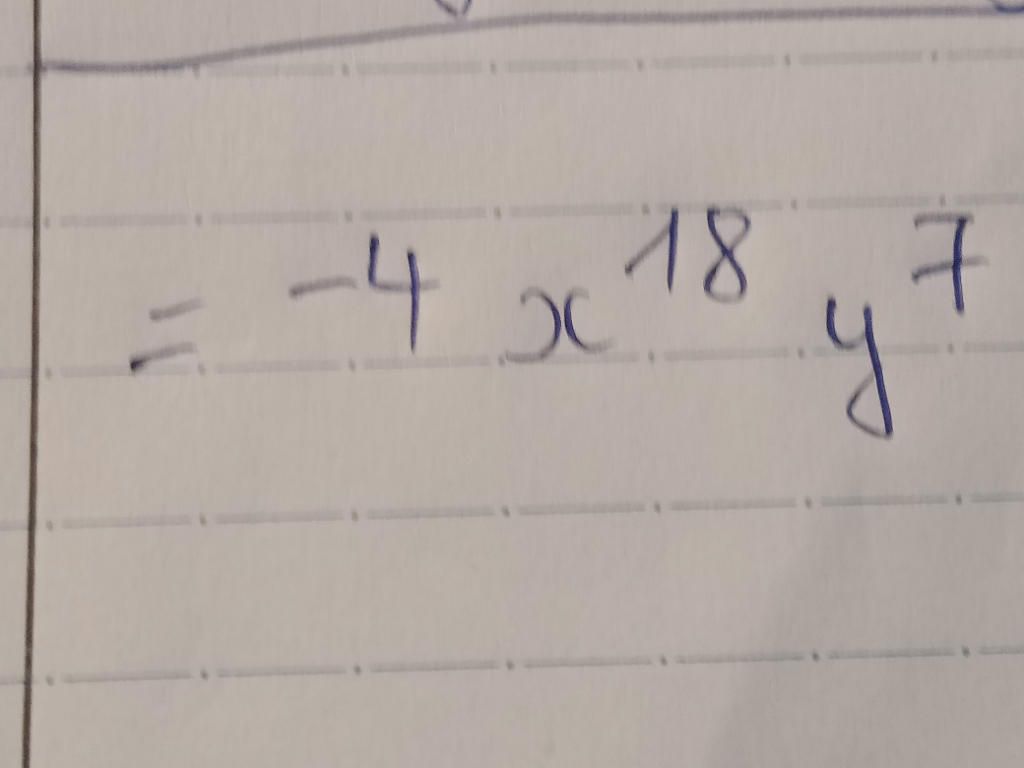 = -4 x^18 y^7